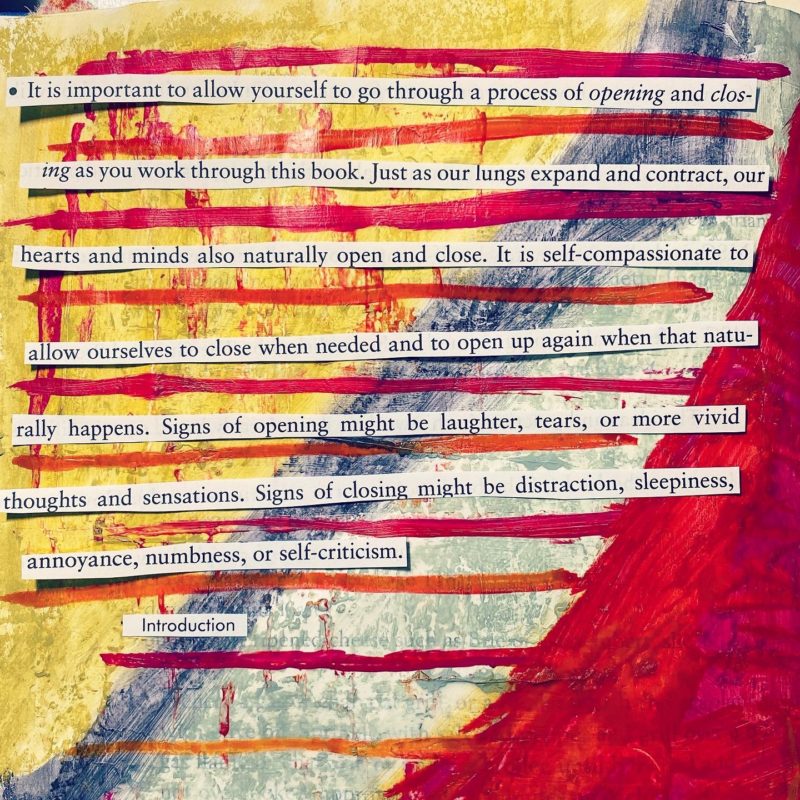 • It is important to allow yourself to go through a process of opening and clos-
ing as you work through this book. Just as our lungs expand and contract, our
hearts and minds also naturally open and close. It is self-compassionate to
allow ourselves to close when needed and to open up again when that natu-
rally happens. Signs of opening might be laughter, tears, or more vivid
thoughts and sensations. Signs of closing might be distraction, sleepiness,
annoyance, numbness, or self-criticism.
Introduction